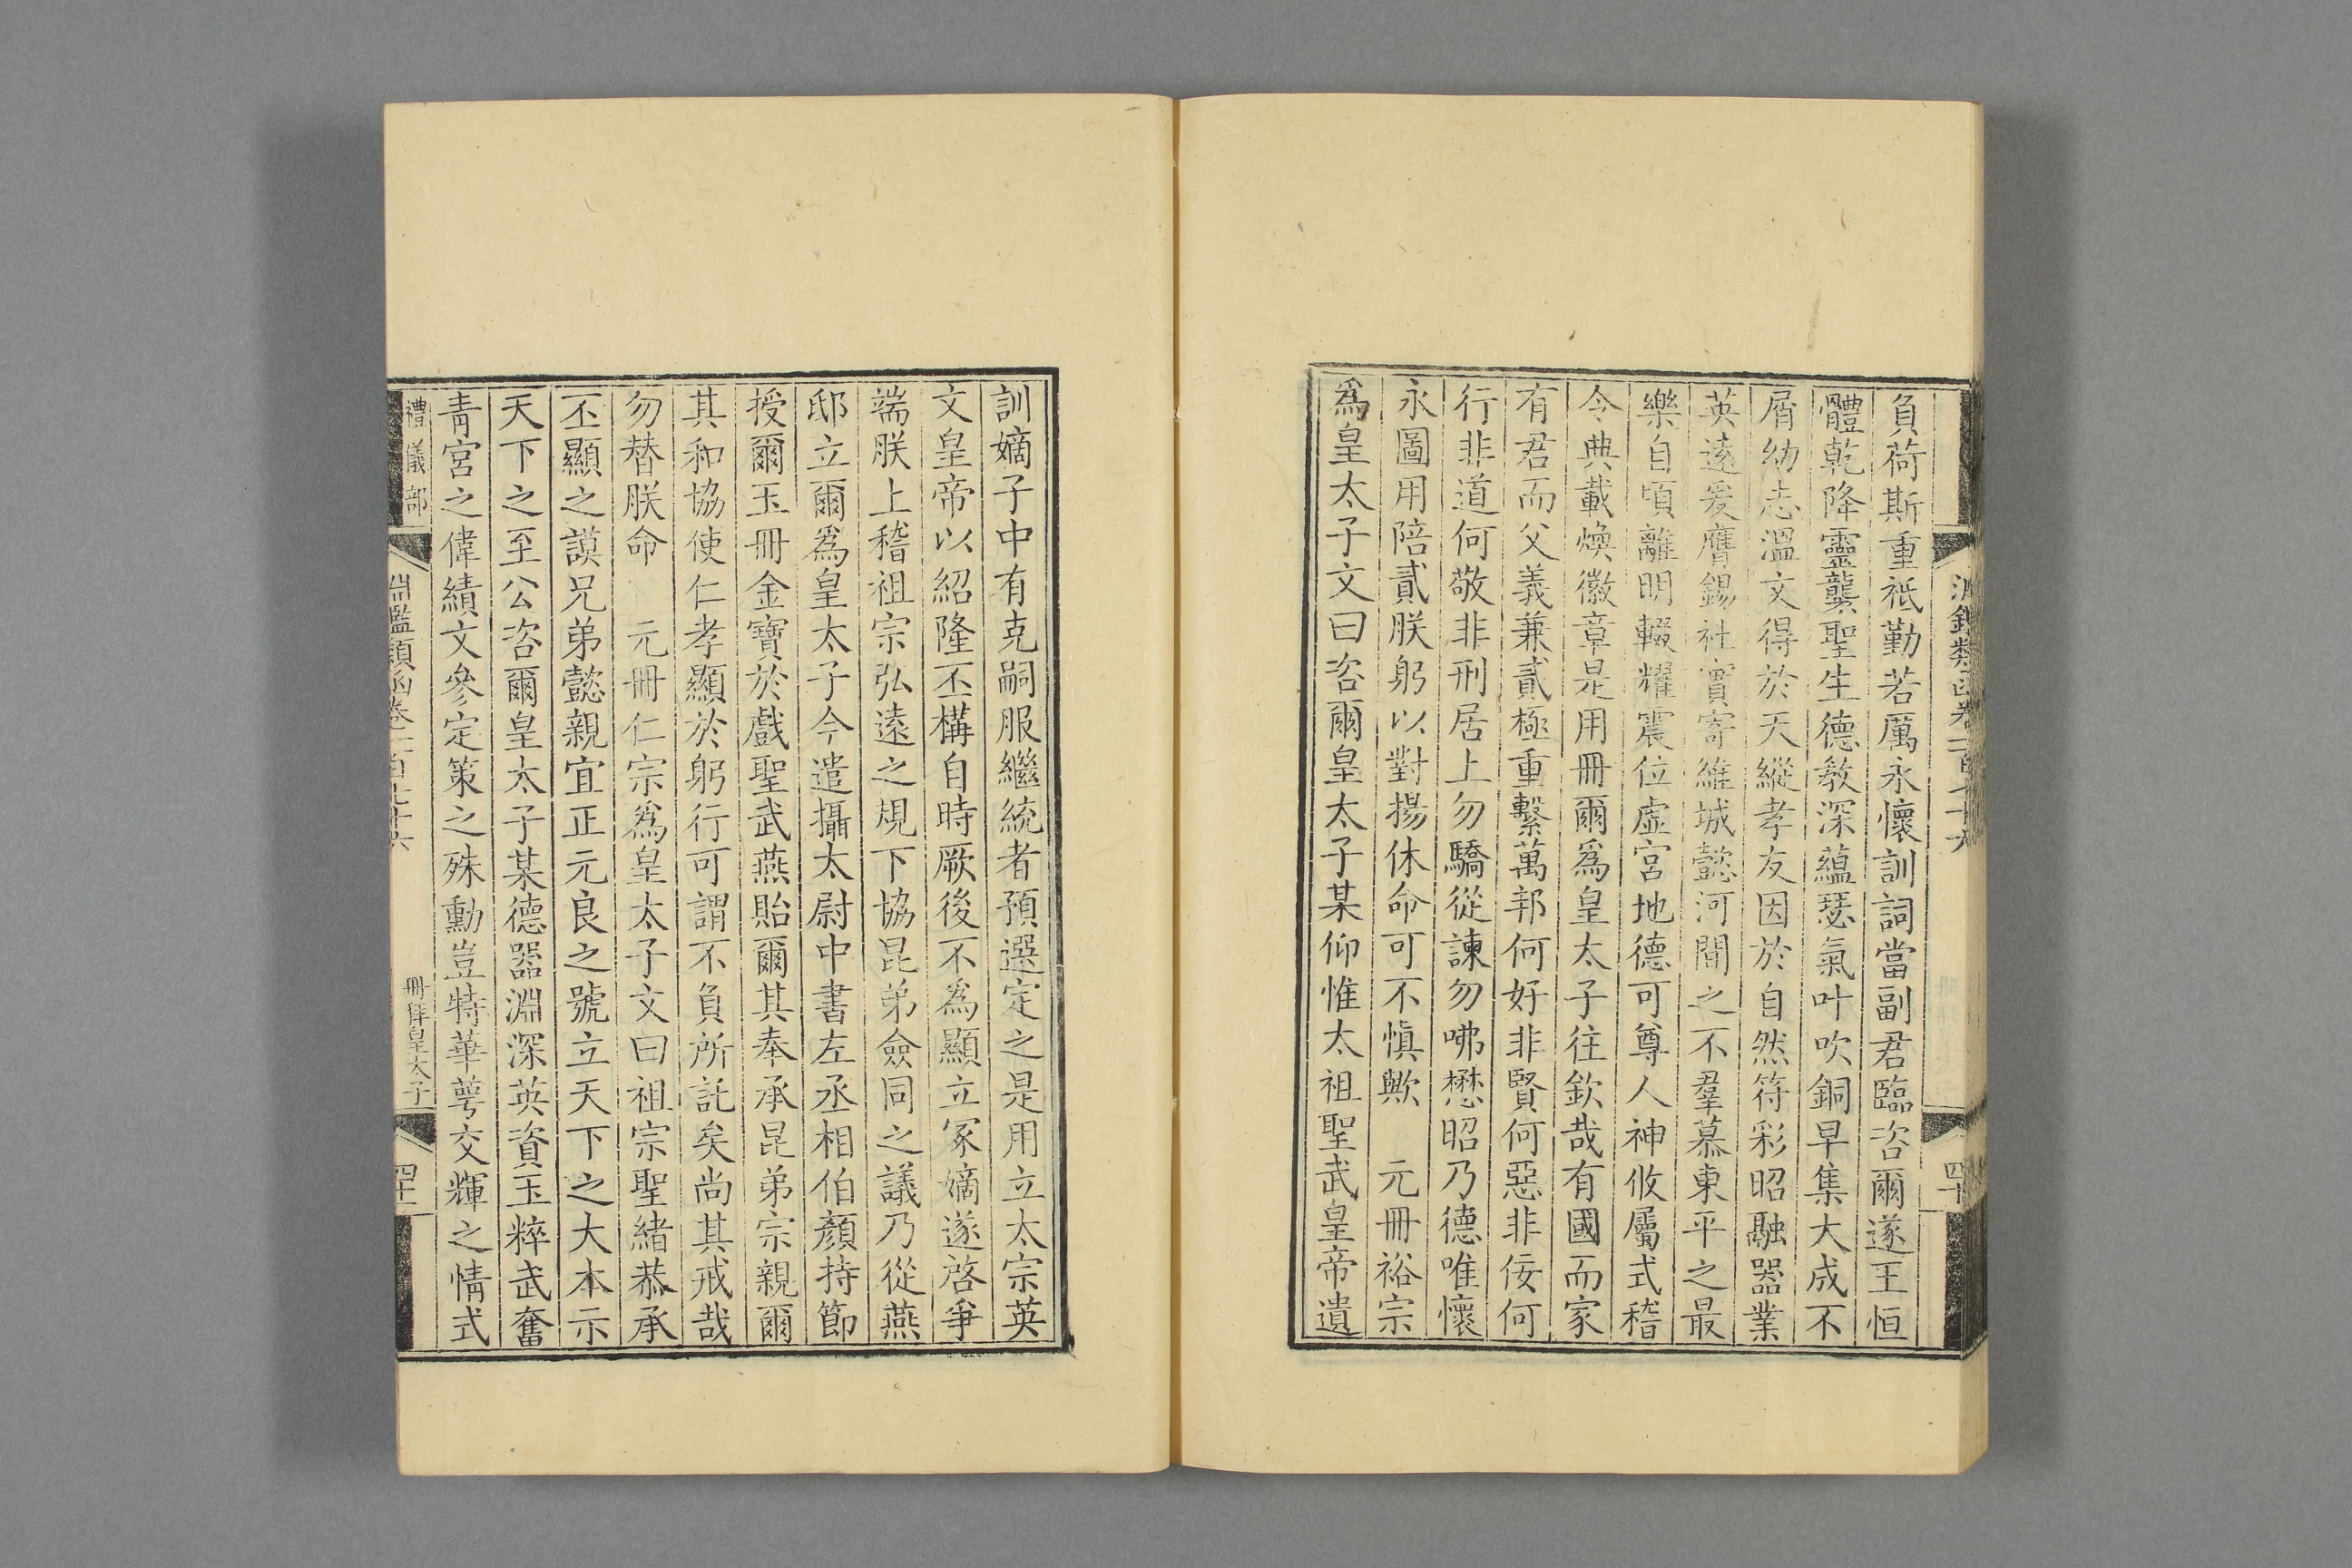 負荷斯重祗勤若厲永懷訓詞當副君臨咨爾遂王恒
體乾降靈襲聖生德教深蘊瑟氣叶吹銅早集大成不
屑幼志溫文得於天縱孝友因於自然符彩昭融器業
英遠爰膺錫社實寄維城懿河間之不羣慕東平之最
樂自頃離明輟耀震位虛宮地德可尊人神攸屬式稽
令典載煥徽章是用冊爾爲皇太子往欽哉有國而家
有君而父義兼貳極重繫萬邦何好非賢何惡非佞何
行非道何敬非刑居上勿驕從諫勿咈懋昭乃德唯懷
永圖用陪貳朕躬以對揚休命可不愼歟　元冊裕宗
爲皇太子文曰咨爾皇太子某仰惟太祖聖武皇帝遺
訓嫡子中有克嗣服繼統者預選定之是用立太宗英
文皇帝以紹隆丕構自時厥後不爲顯立冢嫡遂啓爭
端朕上稽祖宗弘遠之規下協昆弟僉同之議乃從燕
邸立爾爲皇太子今遣攝太尉中書左丞相伯顏持節
授爾玉冊金寶於戲聖武燕貽爾其奉承昆弟宗親爾
其和協使仁孝顯於躬行可謂不負所託矣尚其戒哉
勿替朕命　元冊仁宗爲皇太子文曰祖宗聖緒恭承
丕顯之謨兄弟懿親宜正元良之號立天下之大本示
天下之至公咨爾皇太子某德器淵深英資玉粹武奮
靑宮之偉績文參定策之殊勳豈特華萼交輝之情式
禮儀部
淵鑑類函卷一百七十六
冊拜皇太子
四十一